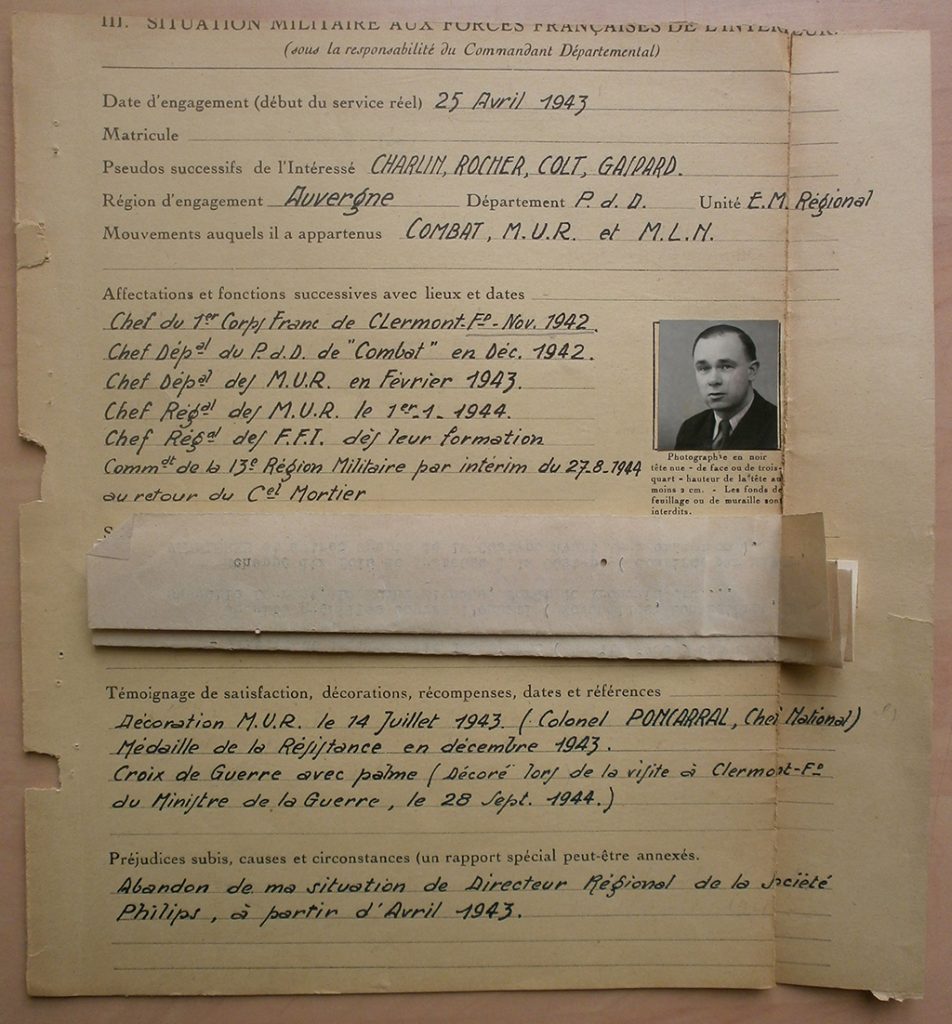 III. SITUATION MILITAIRE AUX FORCES FRANÇAISES DE L'INTERIEUR.
(sous la responsabilité du Commandant Départemental)
Date d'engagement (début du service réel) 25 Avril 1943
Matricule
Pseudos successifs de l'Intéressé CHARLIN, ROCHER, COLT, GASPARD.
Région d'engagement Auvergne Département P. d. D. Unité E.M. Régional
Mouvements auquels il a appartenus COMBAT, M.U.R. et M.L.N.
Affectations et fonctions successives avec lieux et dates
Chef du 1er Corps Franc de Clermont-Fd - Nov. 1942.
Chef Dépal du P.d.D. de "Combat" en Déc. 1942.
Chef Dépal des M.U.R. en Février 1943.
Chef Régal des M.U.R. le 1er-1-1944.
Chef Régal des F.F.I. dès leur formation
Commdt de la 13e Région Militaire par intérim du 27-8-1944
au retour du Cel Mortier
Photographie en noir
tête nue - de face ou de trois-
quart - hauteur de la tête au
moins 2 cm. - Les fonds de
feuillage ou de muraille sont
interdits.
Témoignage de satisfaction, décorations, récompenses, dates et références
Décoration M.U.R. le 14 Juillet 1943. (Colonel PONCARRAL, Chef National)
Médaille de la Résistance en décembre 1943.
Croix de Guerre avec palme (Décoré lors de la visite à Clermont-Fd
du Ministre de la Guerre, le 28 Sept. 1944.)
Préjudices subis, causes et circonstances (un rapport spécial peut-être annexés.
Abandon de ma situation de Directeur Régional de la Société
Philips, à partir d'Avril 1943.